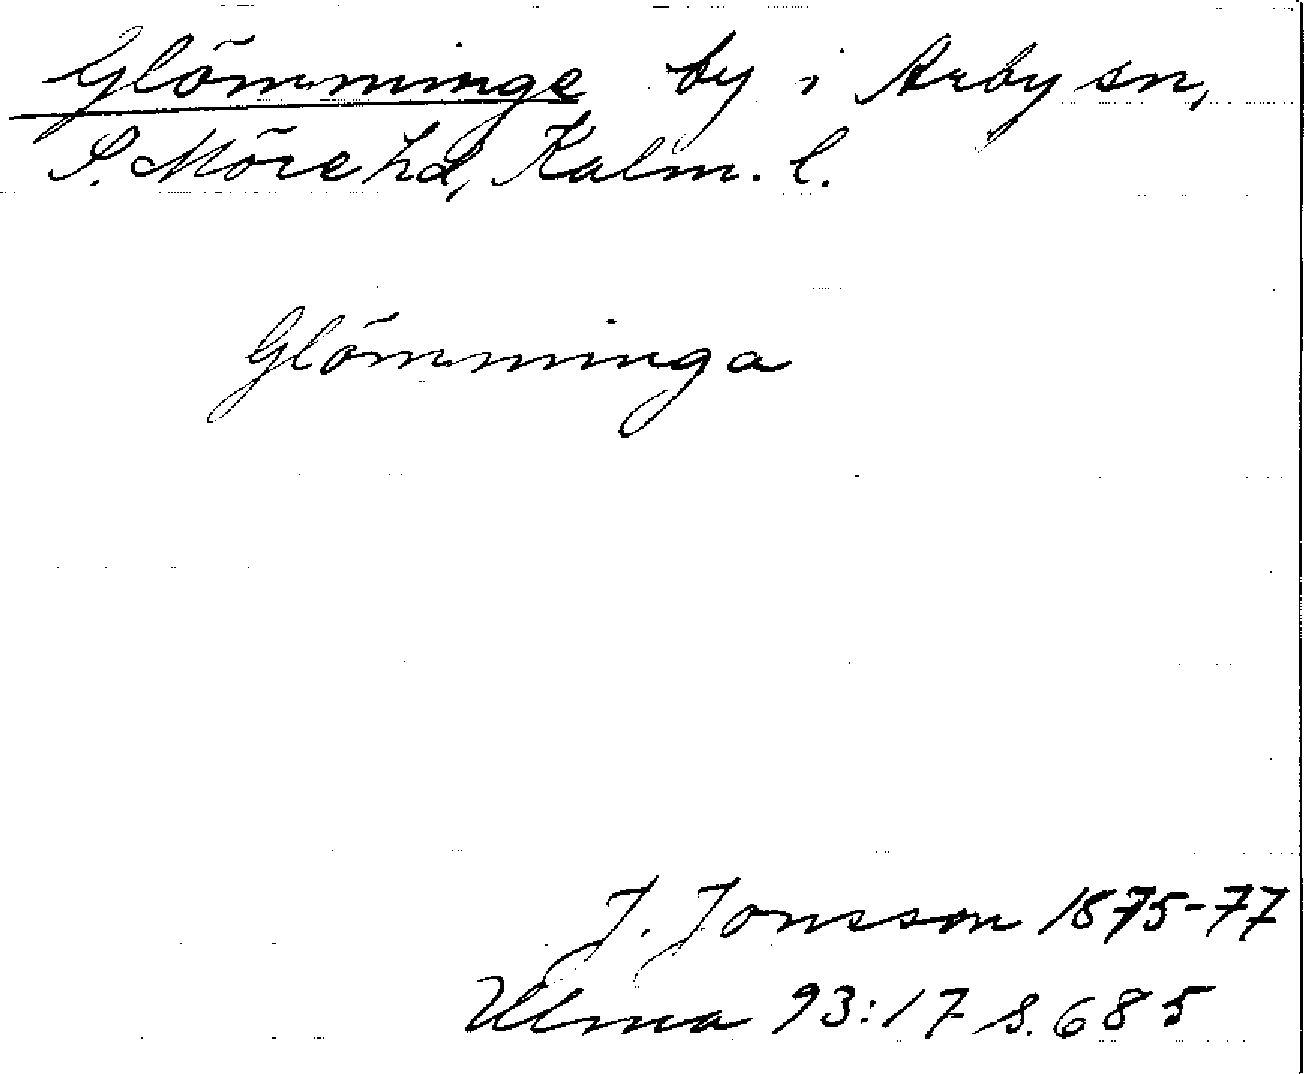 Glömminge by i Arby sn,
S. Möre hd, Kalm. l.
Glömminga
J. Jonsson 1875-77
Ulma 93:17 s. 685